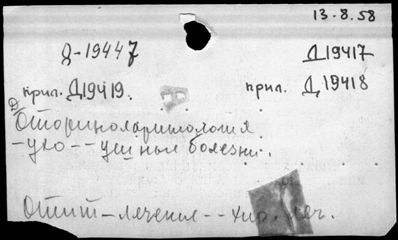 13-8.58
Д-19447 Д19417
крил. Д19419. крил. Д19418
Оториноларингология
-ухо--ушные болезни.
Отит-лечение--хир. леч.